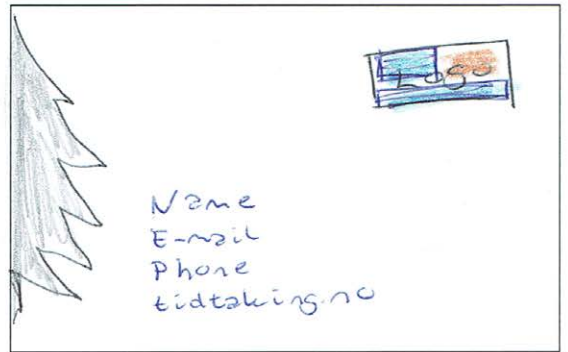 Logo
Name
E-mail
Phone
tidtaking.no